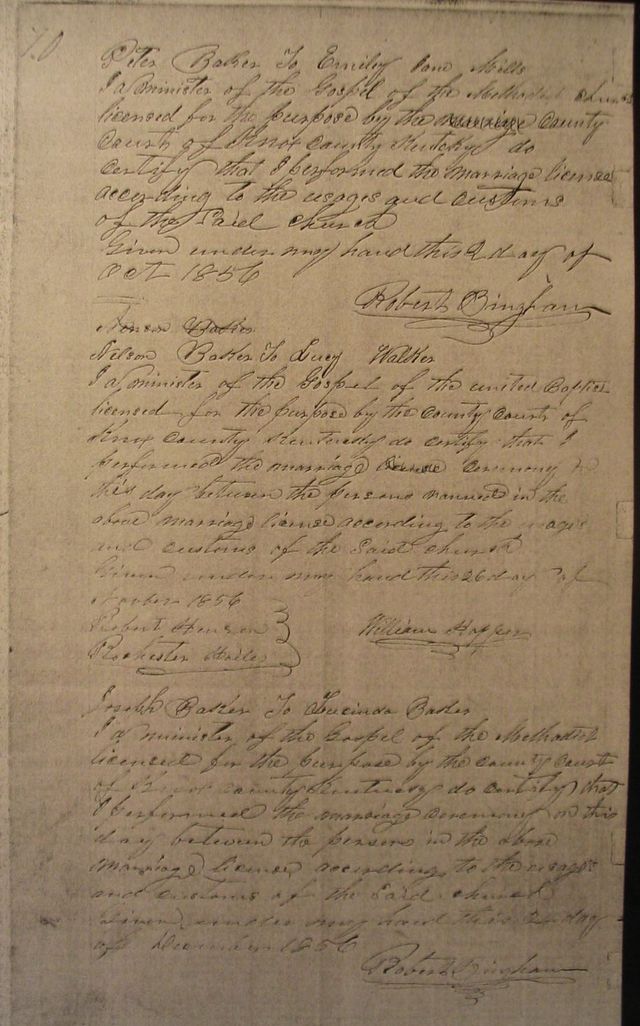 70
Peter Baker To Emily Jane Mills
I a minister of the Gospel of the Methodist church
licensed for the purpose by the County
Court of Knox County Kentucky do
certify that I performed the marriage license
according to the usages and customs
of the Said church
Given under my hand this 2 day of
Oct 1856
Robert Bingham
Nelson Baker To Lucy Walker
I a minister of the Gospel of the united Baptist
licensed for the purpose by the County Court of
Knox County Kentucky do certify that I
performed the marriage ceremony
this day between the persons named in the
above marriage license according to the usages
and customs of the Said church
Given under my hand this 26 day of
1856
Robert
Rochester
William Hopper
Joseph Baker To Lucinda Baker
I a minister of the Gospel of the Methodist
licensed for the purpose by the County Court
of Knox County Kentucky do certify that
I performed the marriage ceremony on this
day between the persons in the above
marriage license according to the usages
and customs of the Said church
Given under my hand this day
of December 1856
Robert Bingham